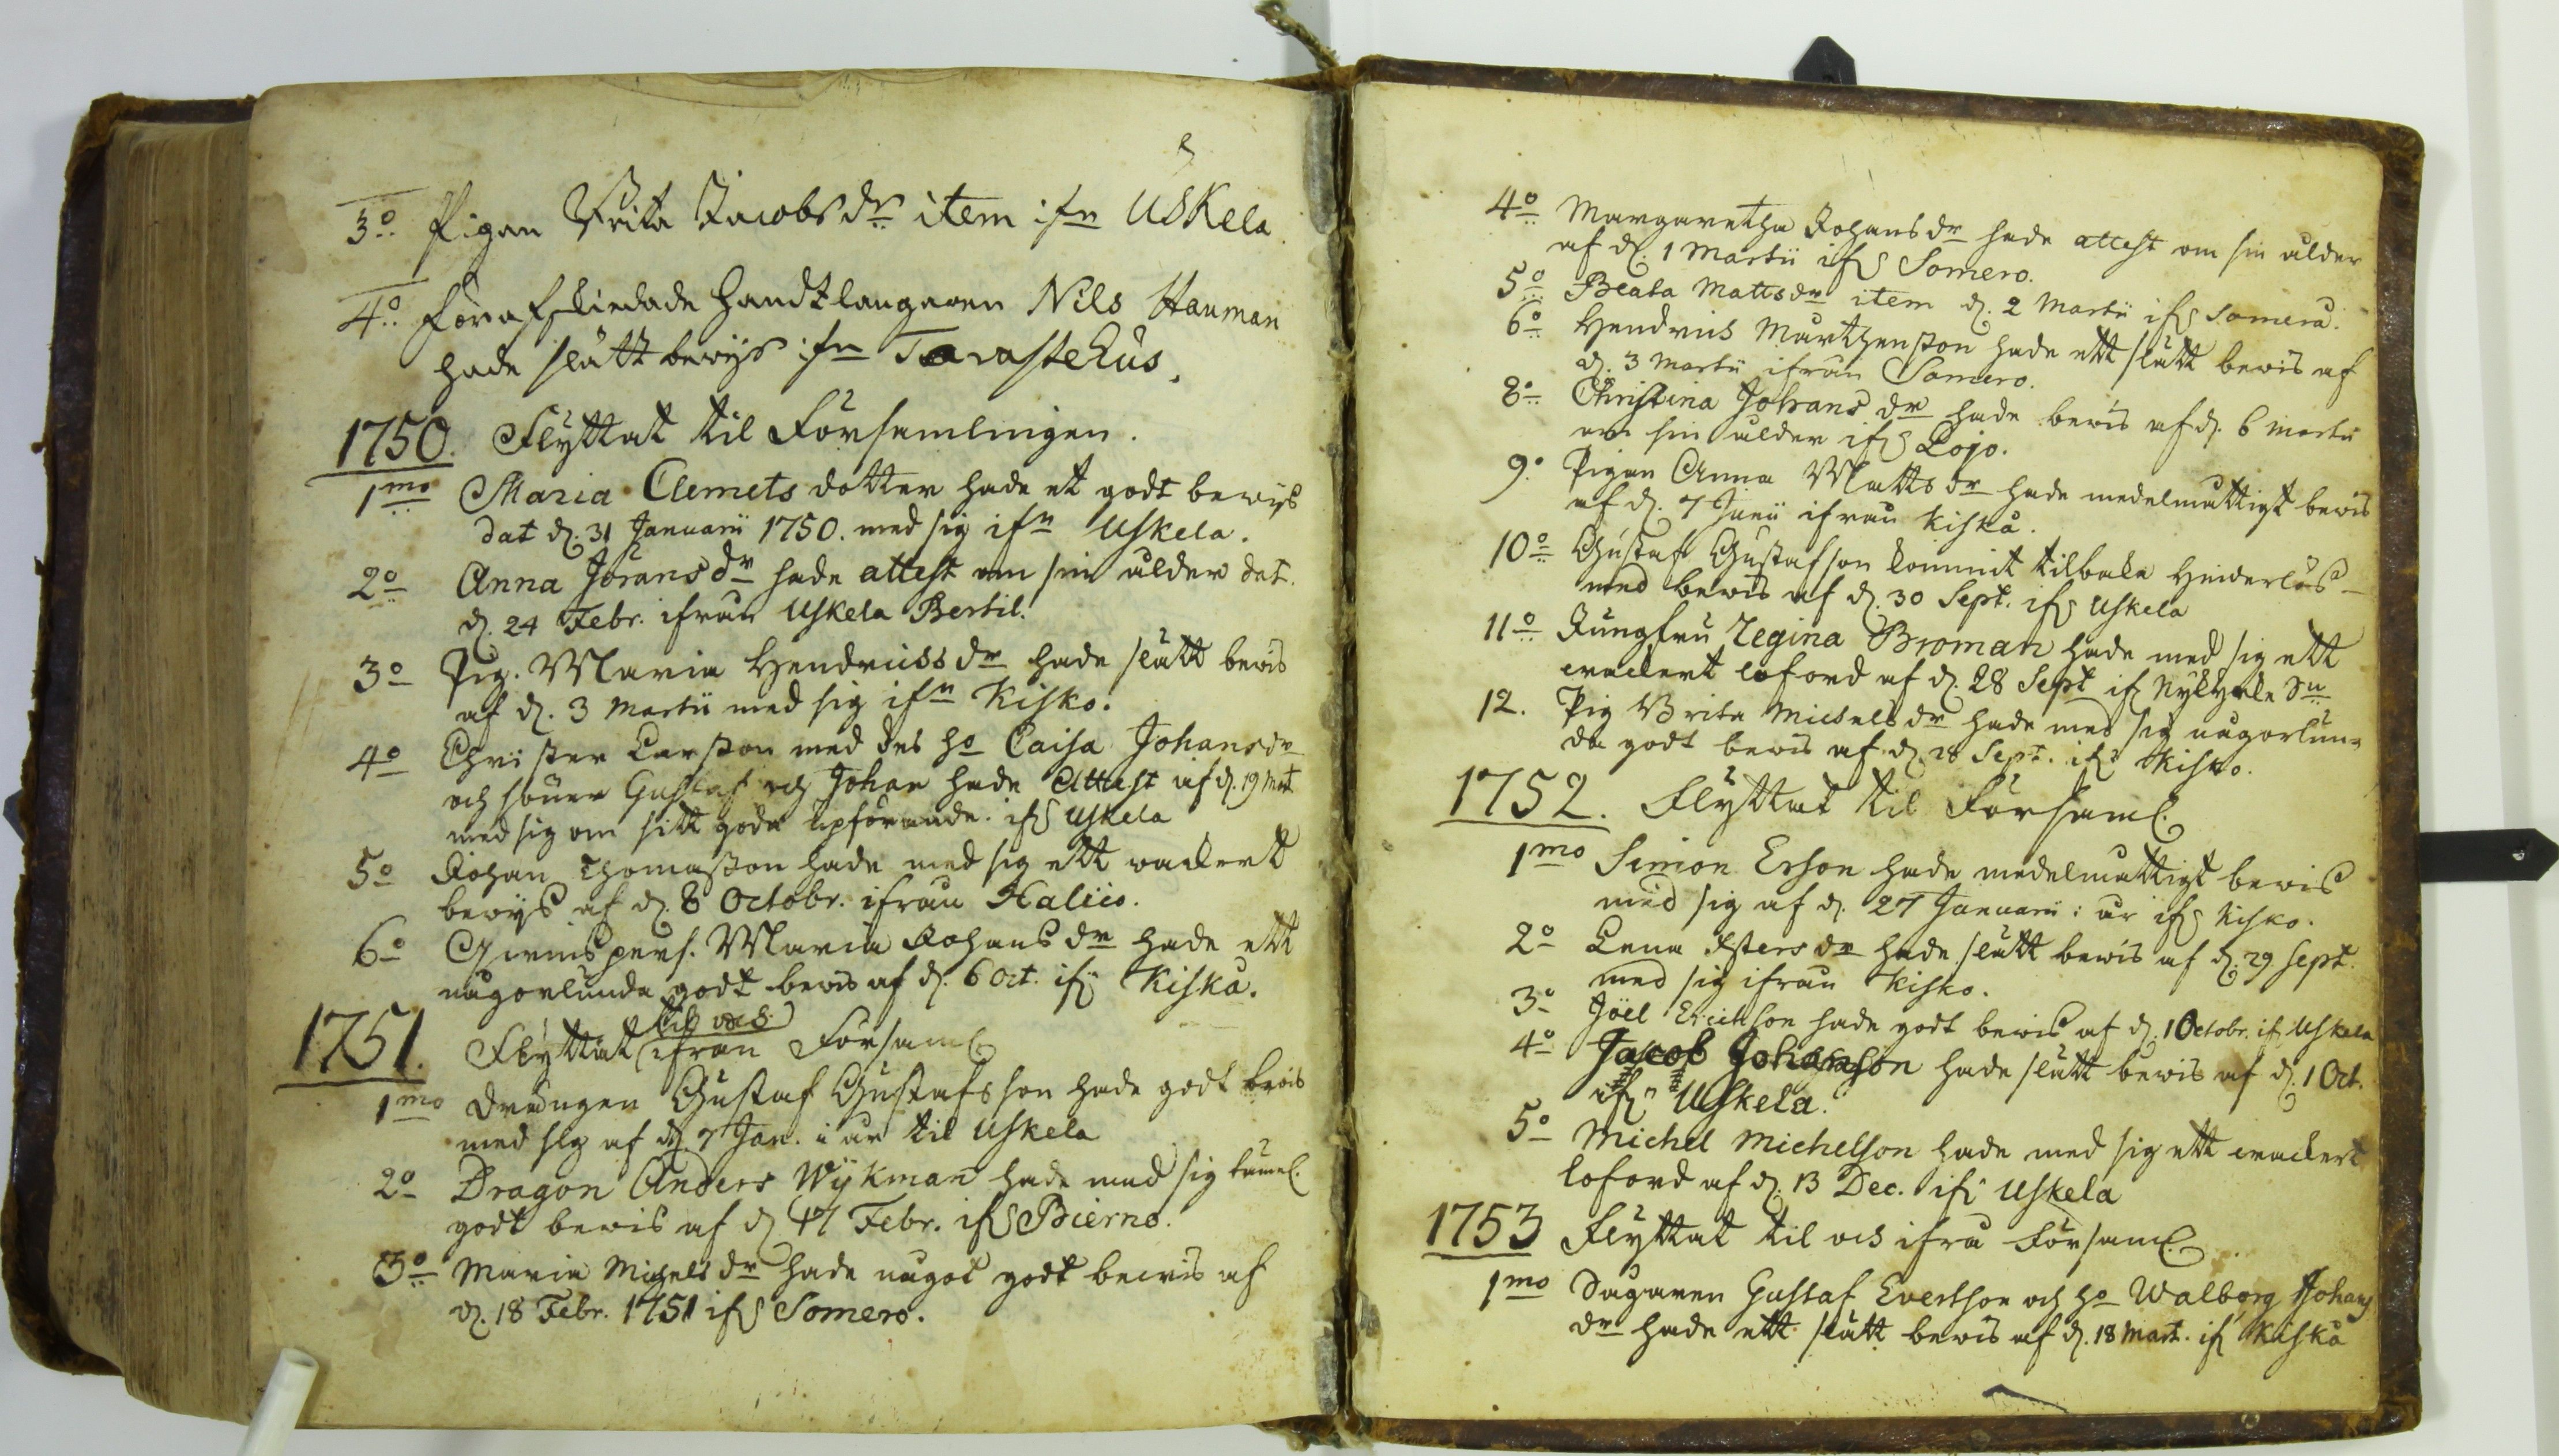 3:o Pigan Brita Jacobs dr item ifn Uskela
4:o Förafskiedade Handtlangaren Nils Hauman
hade slätt bewijs ifn Tavastehus.
1750. Flyttat til Församlingen.
1mo Maria Clemets dotter hade et godt bewijs
dat d. 31 Januarii 1750. med sig ifn Uskela.
2o Anna Jörans dr hade attest om sin ålder dat.
d. 24 Febr. ifrån Uskela Bertil.
3o Pig. Maria Hendrichs dr hade slätt bewis
af d. 3 Martii med sig ifn Kisko.
4o Christer Larsson med des ho Caisa Johans dr
och söner Gustaf och Johan hade Attest af d. 19 Mart
med sig om sitt goda upförande. ifr Uskela
5o Johan Thomasson hade med sig ett wackert
bewijs af d. 8 Octobr. ifrån Haliko.
6o Qwinspers. Maria Johans dr hade ett
någorlunda godt bewis af d. 6 Oct. ifr Kisko.
1751. Flyttat (ifrån Församl.
til oss)
1mo Drängen Gustaf Gustafsson hade godt bewis
med sig af d. 7 Jan. i år til Uskela
2o Dragon Anders Wijkman hade med sig tämel.
godt bewis af d 17 Febr. ifr Bierno.
3o Maria Michels dr hade något godt bewis af
d. 18 Febr. 1751 ifr Somero.
4o Margaretha Johans dr hade attest om sin ålder
af d. 1 Martii ifr Somero.
5o Beata Matts dr item d. 2 Martii ifr Somero.
6o Hendrich Mårthensson hade ett slätt bewis af
d. 3 Martii ifrån Somero.
8o Christina Johans dr hade bewis af d. 6 Martii
om sin ålder ifr Lojo.
9o Pigan Anna Matts dr hade medelmåttigt bewis
af d. 7 Junii ifrån Kisko.
10o Gustaf Gustafson kommit tilbaka hinderlös
med bewis af d. 30 Sept. ifr Uskela
11o Jungfru Regina Broman hade med sig ett
wackert loford af d. 28 Sept ifr Nykyrke Sn
12. Pig Brita Michels dr hade med sig någorlun-
da godt bewis af d. 28 Sept. ifr Kisko.
1752. Flyttat til Församl.
1mo Simon Erson hade medelmåttigt bewis
med sig af d. 27 Januarii i år ifr Kisko.
2o Lena dr hade slätt bewis af d. 29 Sept.
med sig ifrån Kisko.
3o Joel Erichson hade godt bewis af d. 1 Octobr. if Uskela
4o Jacob Johansson hade slätt bewis af d. 1 Oct.
ifr Uskela.
5o Michel Michelson hade med sig ett wackert
loford af d. 13 Dec. ifr Uskela
1753 Flyttat til oss ifrå Församl.
1mo Sågaren Gustaf Evertson och ho Walborg Johans
dr hade ett slätt bewis af d. 18 Mart. ifr Kisko